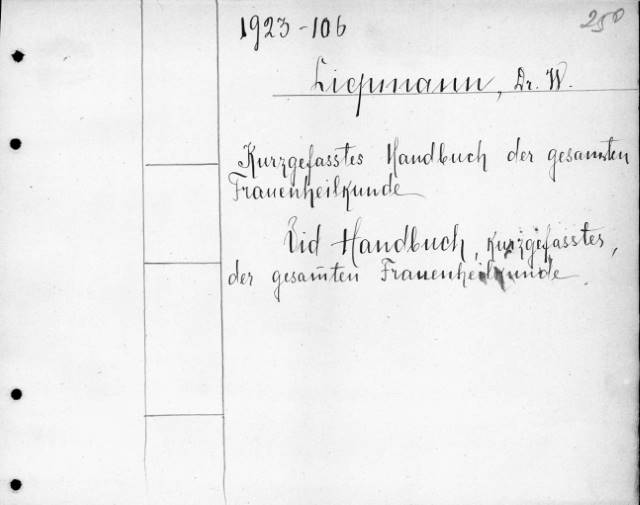 1923-106
250
Liepmann, Dr. W.
Kurzgefasstes Handbuch der gesamten
Frauenheilkunde
Vid Handbuch, kurzgefasstes,
der gesam̄ten Frauenheilkunde.